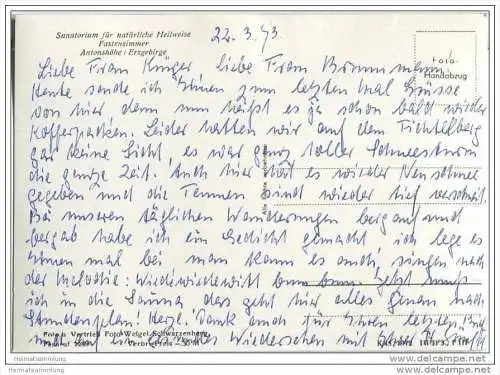 Sanatorium für natürliche Heilweise
Fastenzimmer
Antonshöhe / Erzgebirge
22.3.73
Foto-
Handabzug
Liebe Frau Krüger liebe Frau Brummermann:
Heute sende ich Ihnen zum letzten Mal Grüsse
von hier denn nun heißt es ja schon bald wieder
Kofferpacken. Leider hatten wir auf dem Fichtelberg
gar keine Sicht, es war ganz toller Schneesturm
die ganze Zeit. Auch hier hat es wieder Neuschnee
gegeben und die Tannen sind wieder tief verschneit.
Bei unseren täglichen Wanderungen bergauf und
bergab habe ich ein Gedicht gemacht ich lege es
Ihnen mal bei man kann es auch singen nach
der Melodie: Wiedewiedewitt bum bum. Jetzt muß
ich in die Sauna das geht hier alles genau nach
Stundenplan! Herzl. Dank auch für Ihren letzten Brief
und auf ein gesundes Wiedersehen mit
Foto u. Vertrieb Foto-Weigel, Schwarzenberg